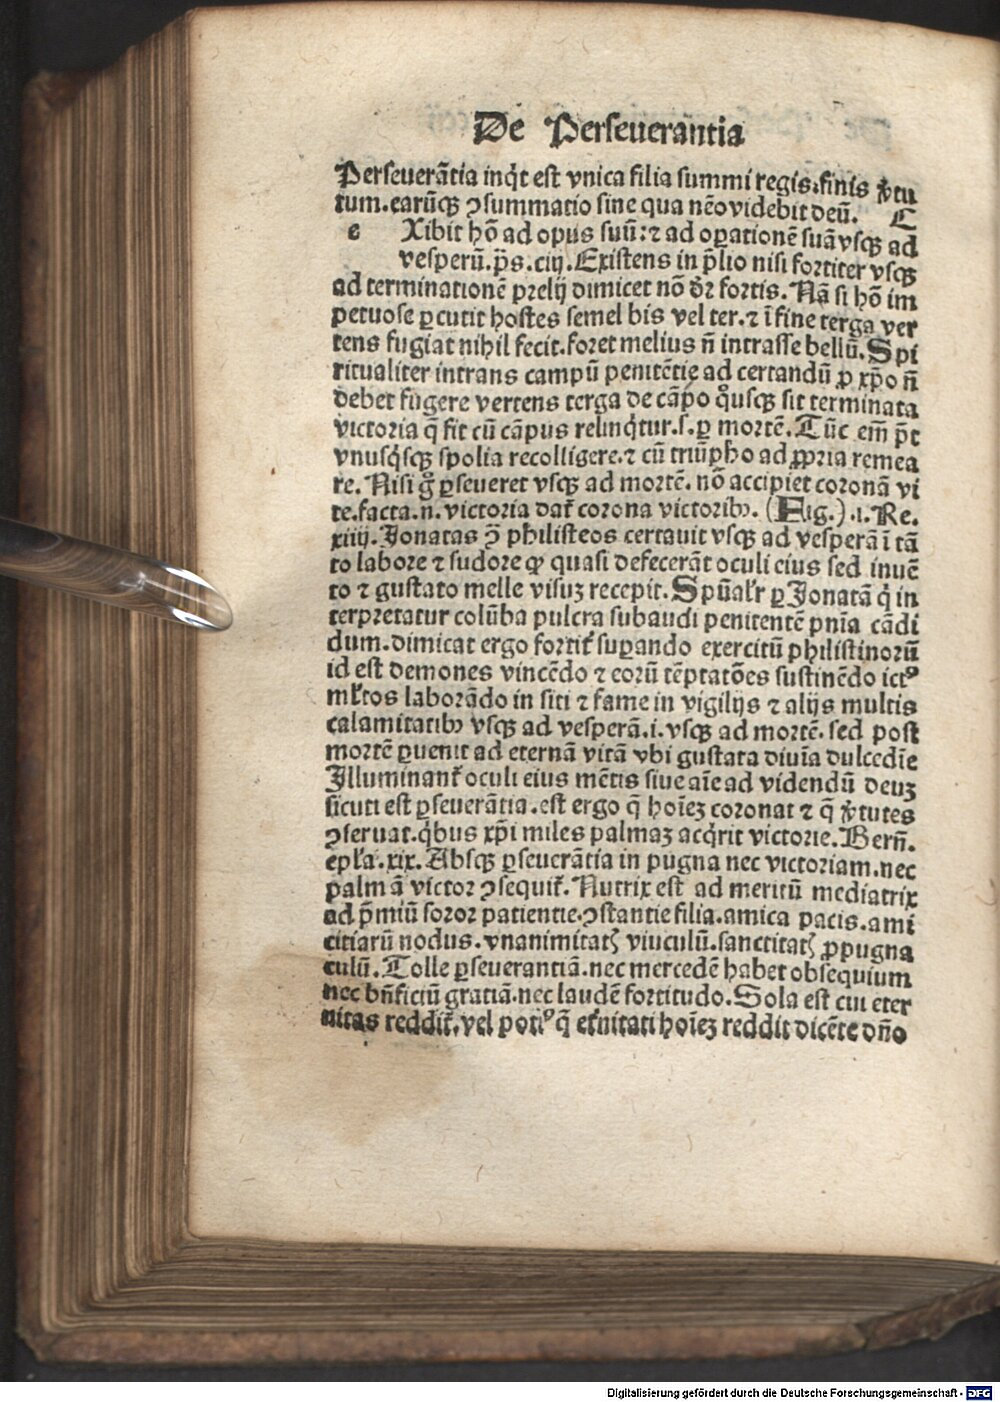 De Perseuerantia
Perseuerãtia inq̇t est vnica filia summi regis.finis v̾tu
tum.earũqꝫ ꝯsummatio sine qua nẽo videbit deũ. C
e Xibit hõ ad opus suũ:⁊ ad oꝑationẽ suã vsqꝫ ad
vesperũ.p̃s.ciij.Existens in p̃lio nisi fortiter vsqꝫ
ad terminationẽ prelij dimicet nõ dr̃ fortis.Nã si hõ im
petuose ꝑcutit hostes semel bis vel ter.⁊ ĩ fine terga ver
tens fugiat nihil fecit.foret melius ñ intrasse bellũ.Spi
ritualiter intrans campũ penitẽtie ad certandũ ꝓ xp̃o ñ
debet fugere vertens terga de cãpo qͦusqꝫ sit terminata
victoria q̃ fit cũ cãpus relinq̇tur.s.ꝑ mortẽ.Tũc em̃ p̃t
vnusq̇sqꝫ spolia recolligere.⁊ cũ triũpho ad ꝓpria remea
re.Nisi gͦ ꝑseueret vsqꝫ ad mortẽ.nõ accipiet coronã vi
te.facta.n.victoria dat̃ corona victoribꝰ.(Fig.).i.Re.
xiiij.Jonatas ꝯ̃ philisteos certauit vsqꝫ ad vesperã ĩ tã
to labore ⁊ sudore ꝙ quasi defecerãt oculi eius sed inuẽ
to ⁊ gustato melle visuꝫ recepit.Spũal̃r ꝑ Jonatã q̇ in
terpretatur colũba pulcra subaudi penitentẽ pnĩa cãdi
dum.dimicat ergo fortit̃ suꝑando exercitũ philistinorũ
id est demones vincẽdo ⁊ eorũ tẽptatões sustinẽdo ictꝰ
ml̃tos laborãdo in siti ⁊ fame in vigilijs ⁊ alijs multis
calamitatibꝰ vsqꝫ ad vesperã.i.vsqꝫ ad mortẽ.sed post
mortẽ ꝑuenit ad eternã vitã vbi gustata diuĩa dulcedĩe
Jlluminant̃ oculi eius mẽtis siue aĩe ad videndũ deuꝫ
sicuti est ꝑseuerãtia.est ergo q̃ hoĩeꝫ coronat ⁊ q̃ v̾tutes
ꝯseruat.q̇bus xp̃i miles palmaꝫ acq̇rit victorie.Berñ.
epl̃a.xix.Absqꝫ ꝑseuerãtia in pugna nec victoriam.nec
palmã victor ꝯsequit̃.Nutrix est ad meritũ mediatrix
ad p̃miũ soror patientie.ꝯstantie filia.amica pacis.ami
citiarũ nodus.vnanimitatꝭ viuculũ.sanctitatꝭ ꝓpugna
culũ.Tolle ꝑseuerantiã.nec mercedẽ habet obsequium
nec bñficiũ gratiã.nec laudẽ fortitudo.Sola est cui eter
nitas reddit̃.vel potiꝰ q̃ et̃nitati hoĩeꝫ reddit dicẽte dño
Digitalisierung gefördert durch die Deutsche Forschungsgemeinschaft - DFG